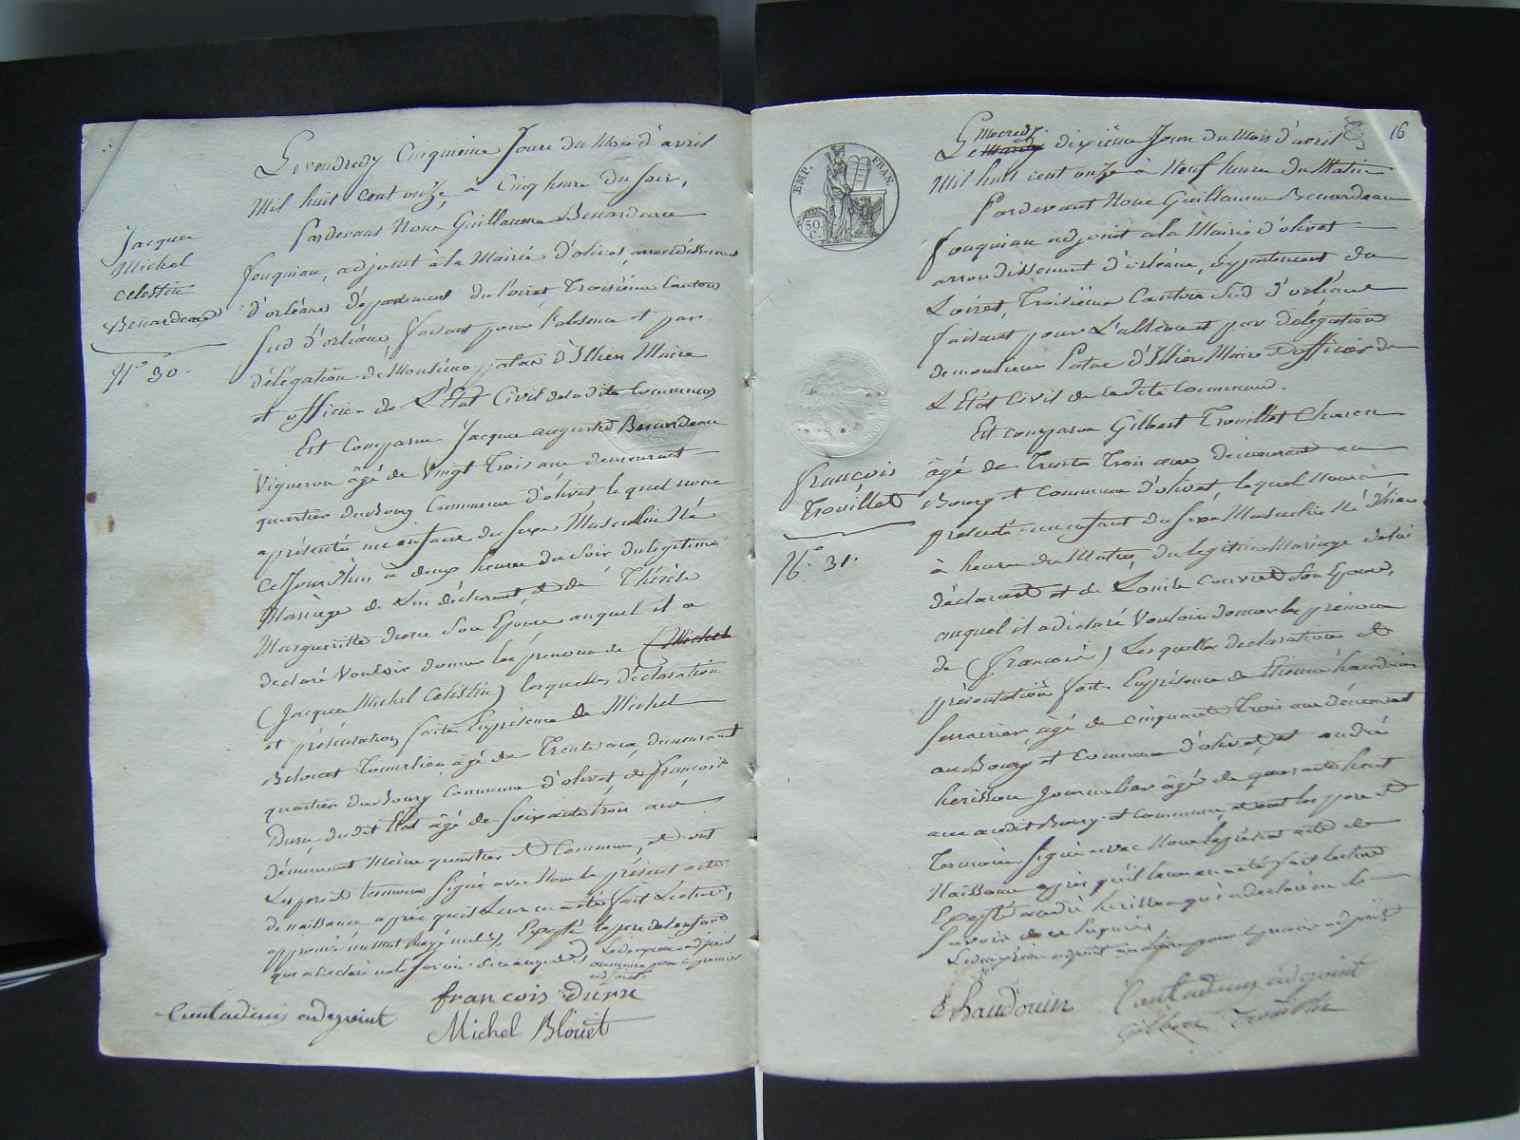 Le vendredy Cinquieme Jour du Mois d'avril
Mil huit cent onze, à Cinq heure du soir,
Pardevant Nous Guillaume Benardeau
fouqueau, adjoint à la Mairie d'olivet, arrondissement
d'orléans Département du Loiret Troisième Canton
Sud d'orléans, faisant pour l'absence et par
délégation de Monsieur patas d'Illiers Maire
et officier de L'Etat Civil de la dite Commune
Est Comparu Jacque auguste Benardeau
Vigneron âgé de Vingt Trois ans demeurant
quartier du Bourg Commune d'olivet lequel nous
a présenté un enfant du sexe Masculin Né
Ce Jourd'hui à deux heure du Soir du legitime
Mariage de Lui déclarant et de Thérèse
Margueritte duru Son Epouse auquel il a
declaré Vouloir donner les prénoms de (Michel
(Jacque Michel Celestin) lesquelles déclaration
et présentation faites En présence de Michel
Blouet Tonnelier âgé de Trente ans, demeurant
quartier du Bourg Commune d'olivet et de françois
Duru dudit Etat âgé de Soixante trois ans
démeurant même quartier et Commune, et ont
Les pere et temoins signé avec Nous le présent acte
de naissance après qu'il Leur en a été fait Lecture,
approuvé un mot Rayé nul, Excepté le père de l'enfant
qui a déclaré ne le savoir de ce enquis
Jacque
Michel
Celestin
Benardeau
N.° 30.
francois durue
Cantadinis adjoint
Michel Blouet
16
EMP. FRAN.
50
Le Mardy mecredy dixieme Jour du Mois d'avril
Mil huit cent onze à Neuf heure du Matin
Pardevant Nous Guillaume Benardeau
fouqueau adjoint à la Mairie d'olivet
arrondissement d'orléans, département du
Loiret, Troisième Canton Sud d'orléans
faisant pour L'absence et par délégation
de monsieur Patas d'Illiers Maire et officier de
L'Etat Civil de la dite Commune.
Est comparu Gilbert Trouillet
âgé de Trente Trois ans demeurant au
Bourg et Commune d'olivet, lequel Nous à
présenté un enfant du sexe Masculin Né
à heure du Matin, du legitime Mariage de lui
déclarant et de Louise Son Epouse,
auquel il a déclaré Vouloir donner les prénoms
de (françois) Lesquelles declaration et
présentation faite En présence de Etienne haudouin
Serrurier, âgé de cinquante Trois ans demeurant
au Bourg et Commune d'olivet, et andré
herisson Journalier âgé de quarante huit
ans audit Bourg et Commune, et ont les pere et
Temoins signé avec Nous le présent acte de
Naissance après qu'il leur en a été fait lecture
Excepté andré herisson qui a déclaré ne le
Savoir de ce enquis
françois
Trouillet
N.° 31.
E haudouin
Cantadinis adjoint
Gilbert Trouillet